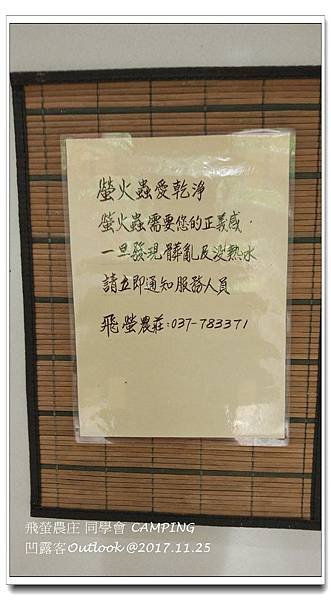 螢火蟲愛乾淨
螢火蟲需要您的正義感.
一旦發現髒亂及沒熱水
請立即通知服務人員
飛螢農莊:037-783371
飛螢農庄 同學會 CAMPING
凹露客Outlook @2017.11.25